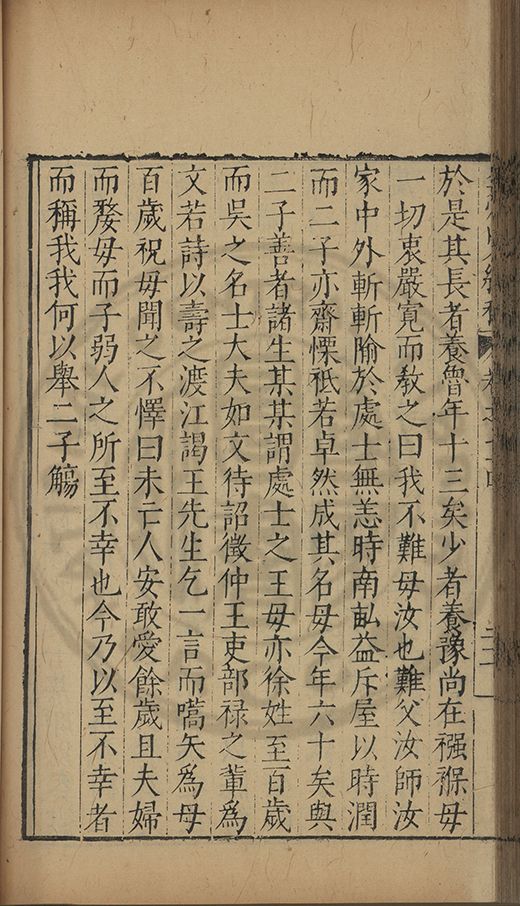 於是其長者養魯年十三矣少者養豫尚在襁褓母
一切衷嚴寬而教之曰我不難母汝也難父汝師汝
家中外斬斬隃於處士無恙時南畝益斥屋以時潤
而二子亦齋慄祗若卓然成其名母今年六十矣與
二子善者諸生某某謂處士之王母亦徐姓至百歲
而吳之名士大夫如文待詔徵仲王吏部祿之輩為
文若詩以壽之渡江謁王先生乞一言而嚆矢為母
百歲祝母聞之不懌曰未亡人安敢愛餘歲且夫婦
而嫠母而子弱人之所至不幸也今乃以至不幸者
而稱我我何以舉二子觴